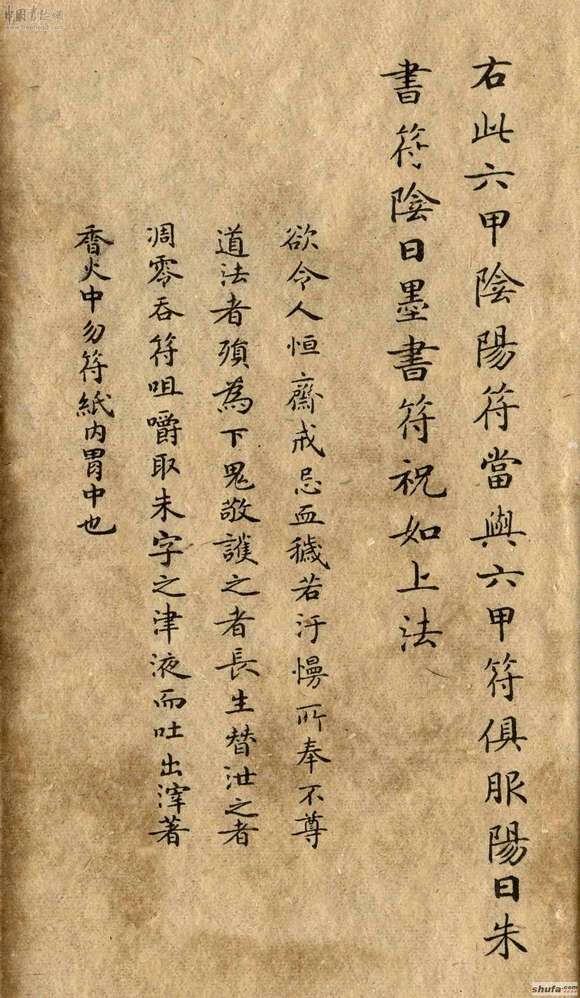 右此六甲陰陽符當與六甲符俱服陽日朱
書符陰日墨書符祝如上法
欲令人恒齋戒忌血穢若汙慢所奉不尊
道法者殞為下鬼敬護之者長生替泄之者
凋零吞符咀嚼取朱字之津液而吐出滓著
香火中勿符紙內胃中也
shufa.com